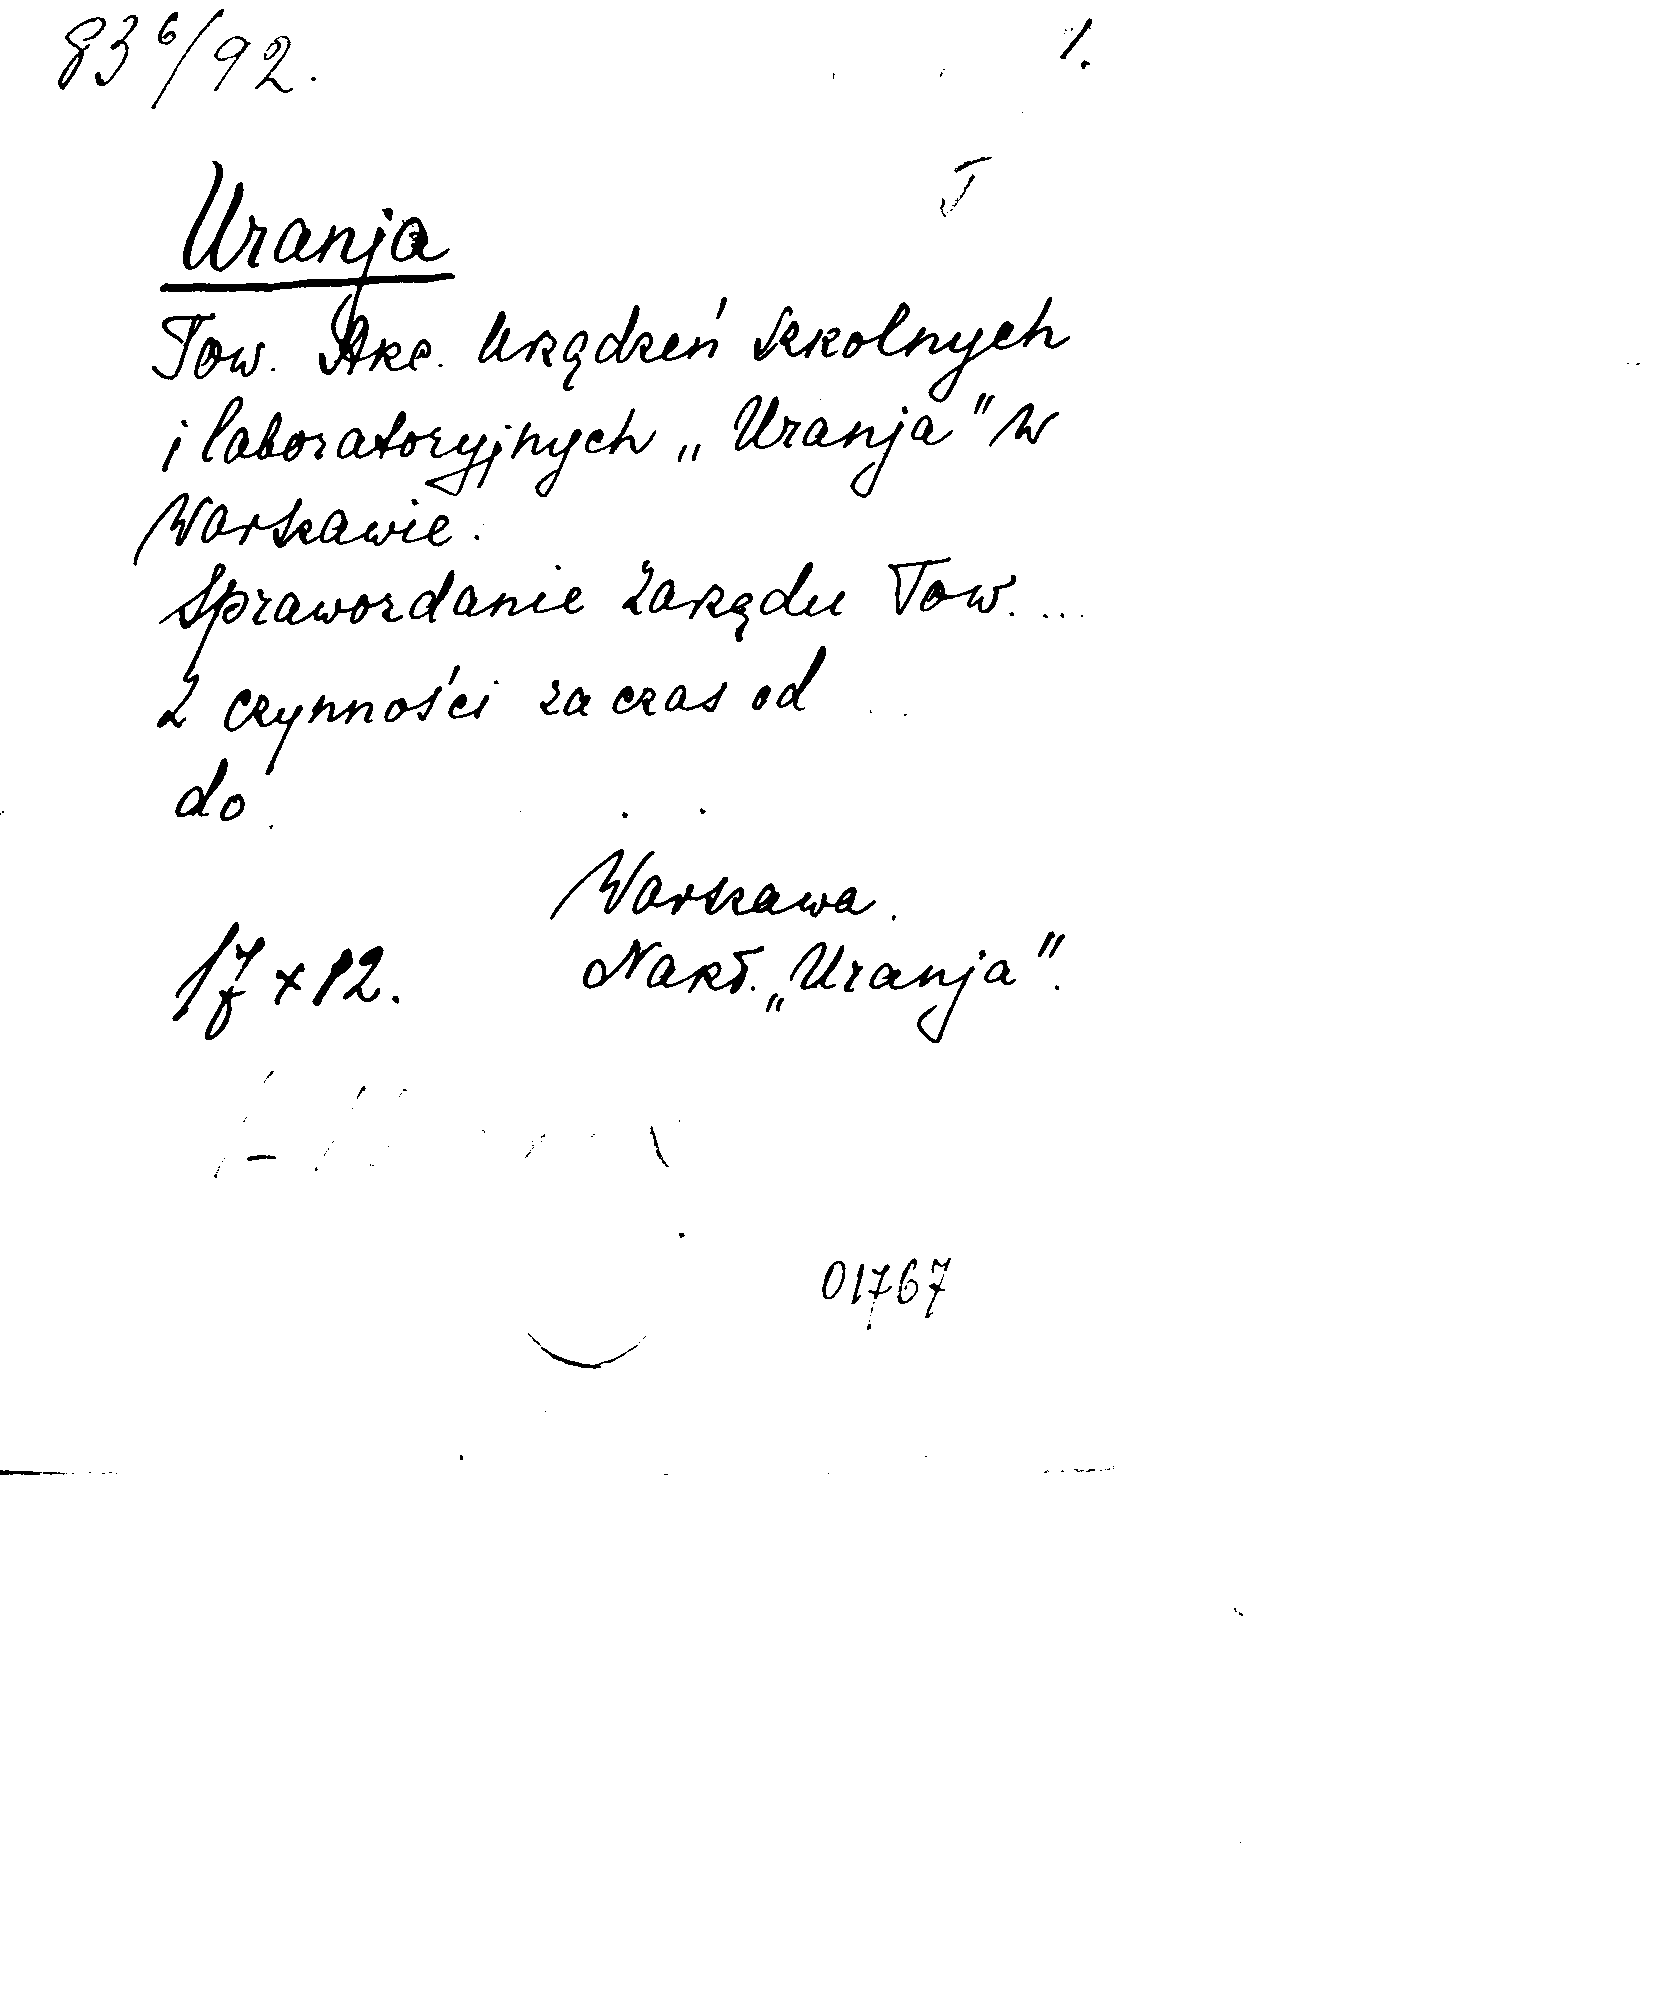 83⁶/92. 1.
J
Uranja
Tow. Akc. Urządzeń szkolnych
i laboratoryjnych „Uranja" w
Warszawie.
Sprawozdanie Zarządu Tow. ...
z czynności za czas od
do
Warszawa.
17 x 12. Nakł. „Uranja".
01767